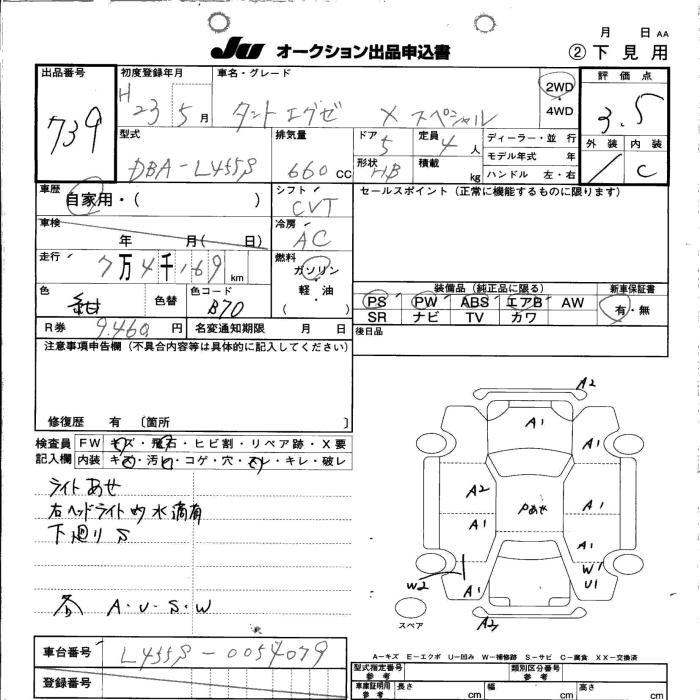 月 日 AA
JU オークション出品申込書 ②下見用
出品番号 初度登録年月 車名・グレード 評価点
739 H23 5月 タント エグゼ X スペシャル 2WD・4WD 3.5
型式 排気量 ドア 定員 ディーラー・並行 外装 内装
DBA-L455S 660cc 5 4人 モデル年式 年 / C
形状 HB 積載 kg ハンドル 左・右
車歴 自家用・( ) シフト CVT セールスポイント (正常に機能するものに限ります)
車検 年 月( 日) 冷房 AC
走行 7万4千169km 燃料 ガソリン・軽・油 ( )
色 紺 色替 色コード B70
装備品 (純正品に限る) 新車保証書
PS PW ABS エアB AW 有・無
SR ナビ TV カワ
R券 9,460円 名変通知期限 月 日 後日品
注意事項申告欄 (不具合内容等は具体的に記入してください)
修復歴 有 〔箇所 〕
検査員 FW キズ・飛石・ヒビ割・リペア跡・X要
記入欄 内装 キズ・汚レ・コゲ・穴・スレ・キレ・破レ
ライトあせ
右ヘッドライト内水滴有
下廻りS
各 A・U・S・W
A2
A1
A1
A2
Pあせ
A1
A1
A1
W2
A1
W1
U1
A2
スペア
A-キズ E-エクボ U-凹み W-補修跡 S-サビ C-腐食 XX-交換済
車台番号 L455S-0054079
登録番号
型式指定番号 参考 類別区分番号 参考
車庫証明用 参考 長さ cm 幅 cm 高さ cm